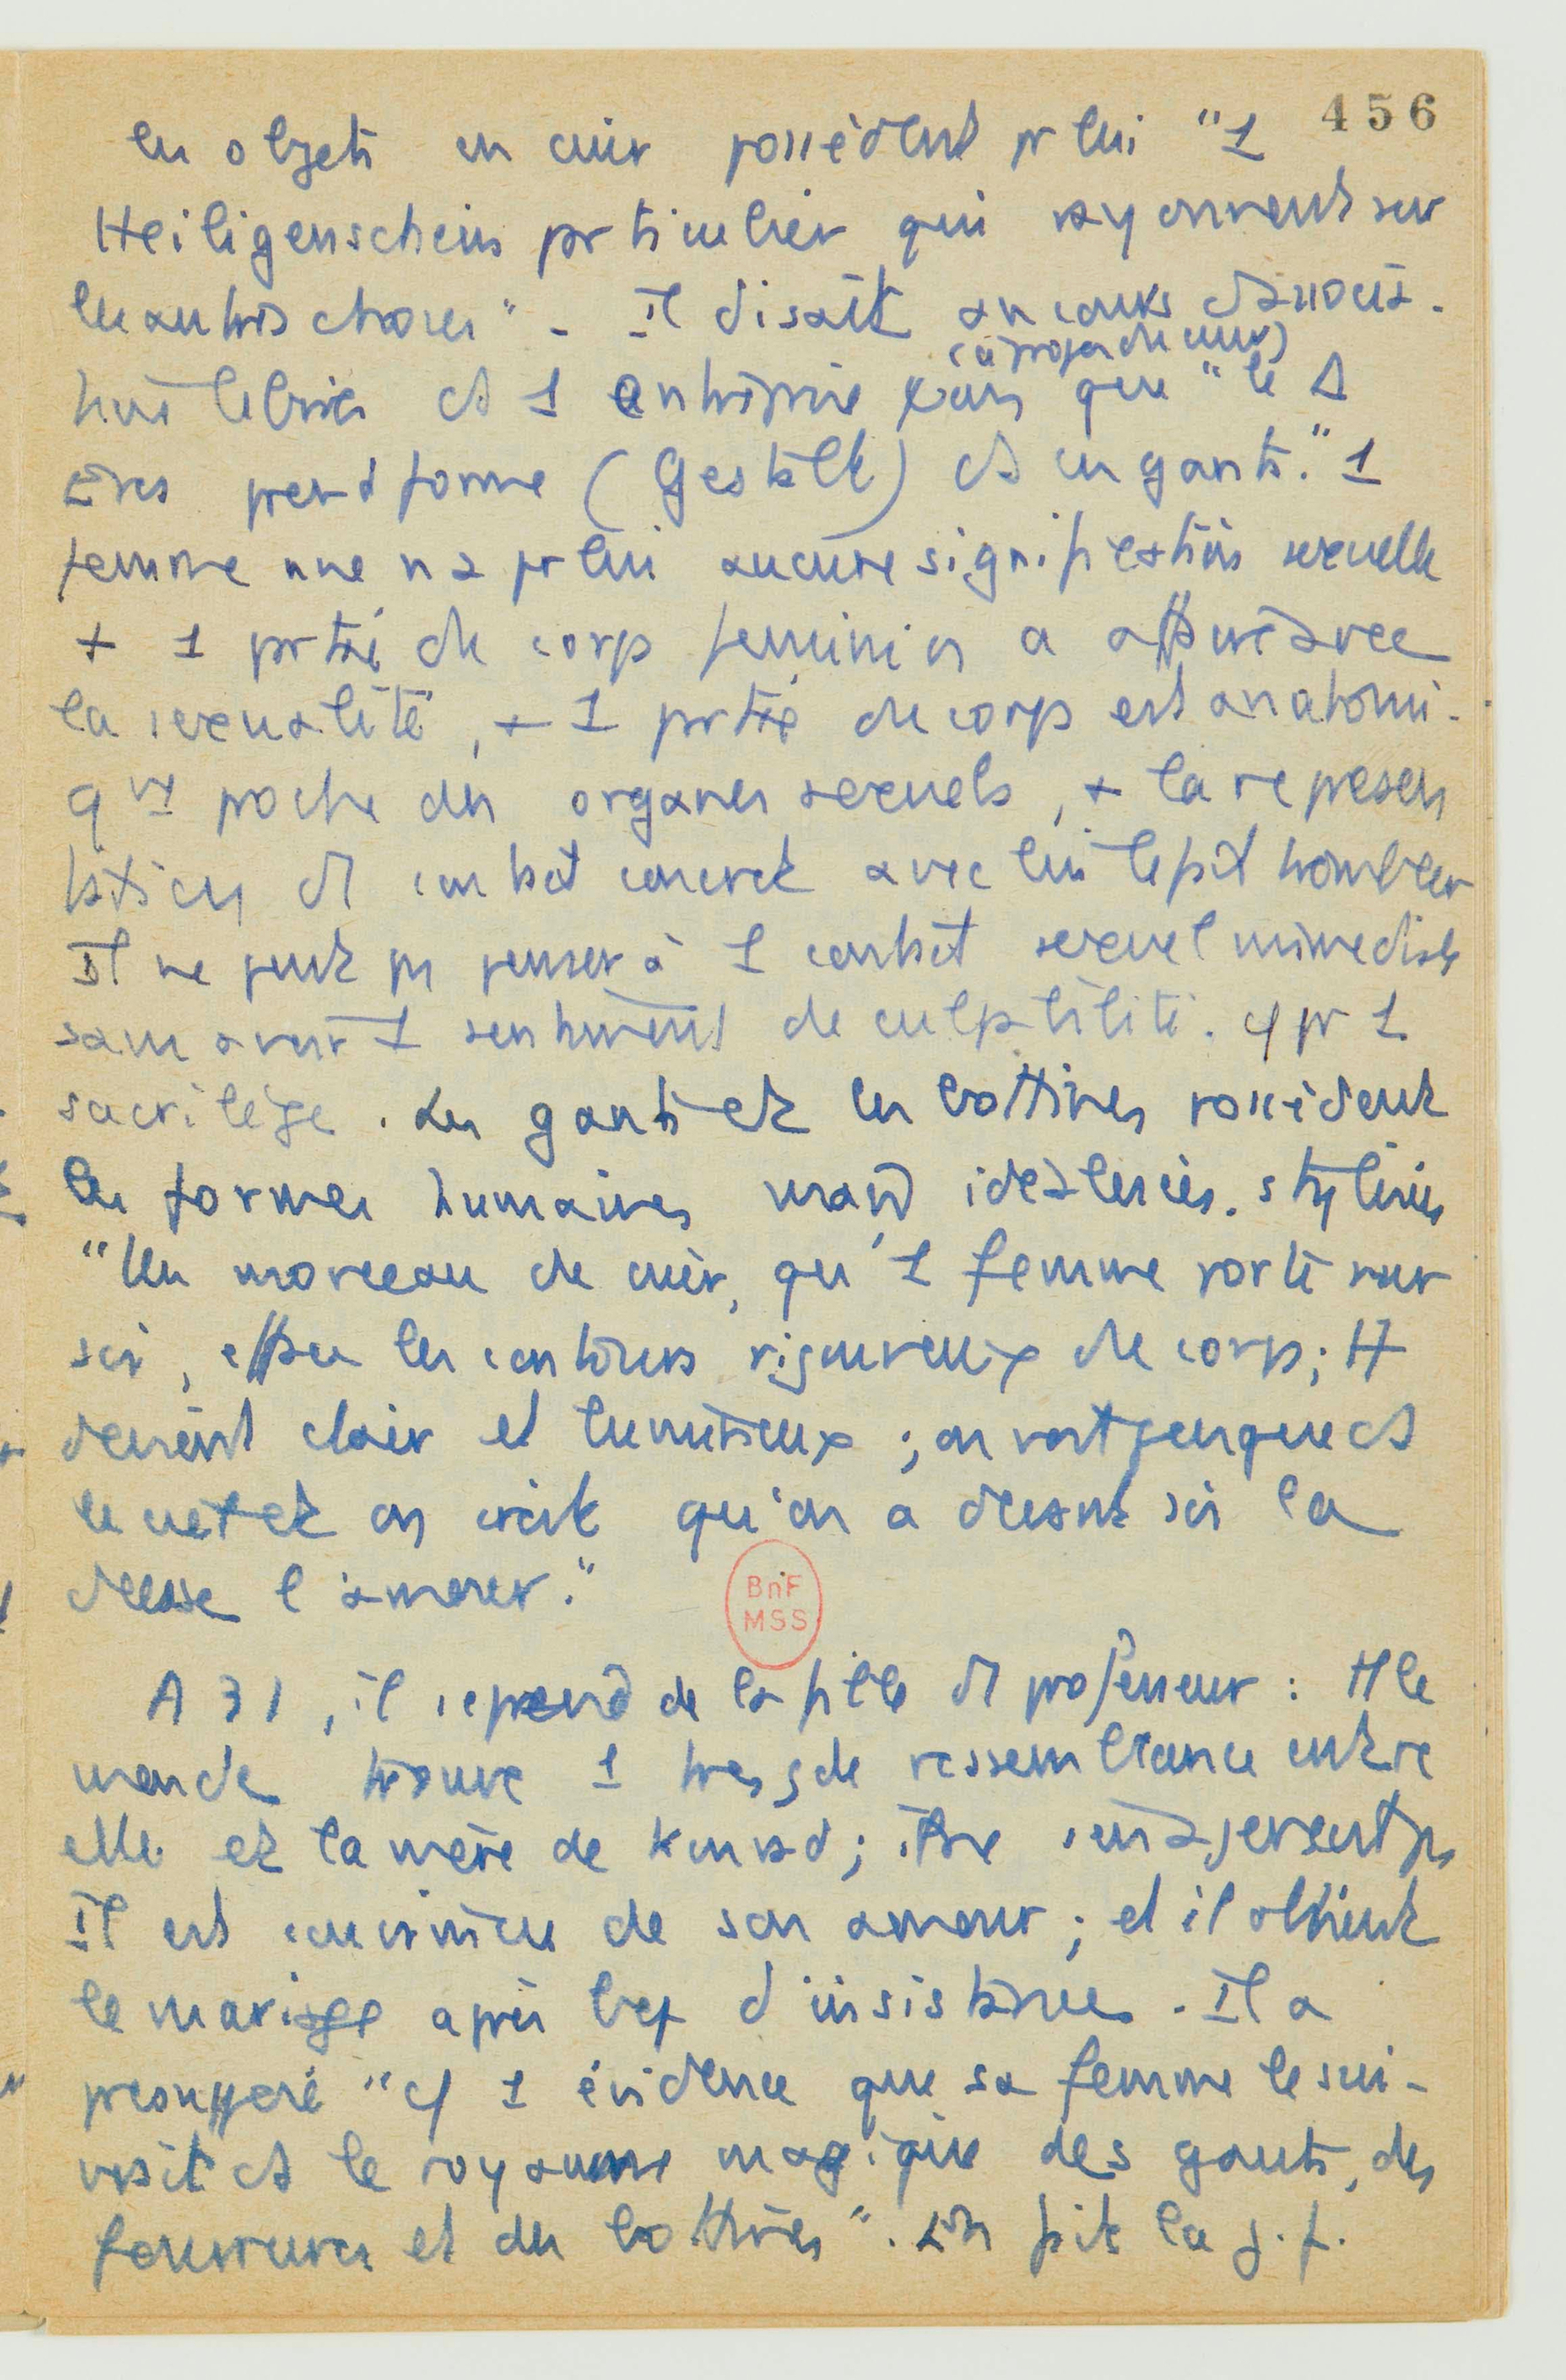 456
les objets en cuir possèdent pr lui "1
Heiligenschein prticulier qui rayonnent sur
les autres choses" - Il disait au cours d'associa-
(à propos du cuir)
tions libres ds 1 entreprise que "le
Eros prend forme (Gestalt) ds les gants." 1
femme nue n'a pr lui aucune signification sexuelle
+ 1 prtie du corps feminin a affaire avec
la sexualité, + 1 prtie du corps est anatomi-
qt proche des organes sexuels, + la represen
tation du contact concret avec lui le fait trembler
Il ne peut ps penser à 1 contact sexuel immediat
sans avoir 1 sentiment de culpabilité. cf pr 1
sacrilège. Les gants et les bottines possèdent
les formes humaines mais idéalisées. stylisées
"Un morceau de cuir, qu'1 femme porte sur
soi, efface les contours rigoureux du corps; tt
devient clair et lumineux; on voit ds
le net et on croit qu'on a devant soi la
déesse l'amour."
BnF
MSS
A 31, il s'eprend de la fille d'1 professeur: tt le
monde trouve 1 tres gde ressemblance entre
elle et la mère de Konrad; lui ne s'en aperçoit ps
Il est convaincu de son amour; et il obtient
le mariage après bcp d'insistance. Il a
presupposé "cf 1 évidence que sa femme le sui-
vrait ds le royaume magique des gants, des
fourrures et des bottines". En fait la j.f.